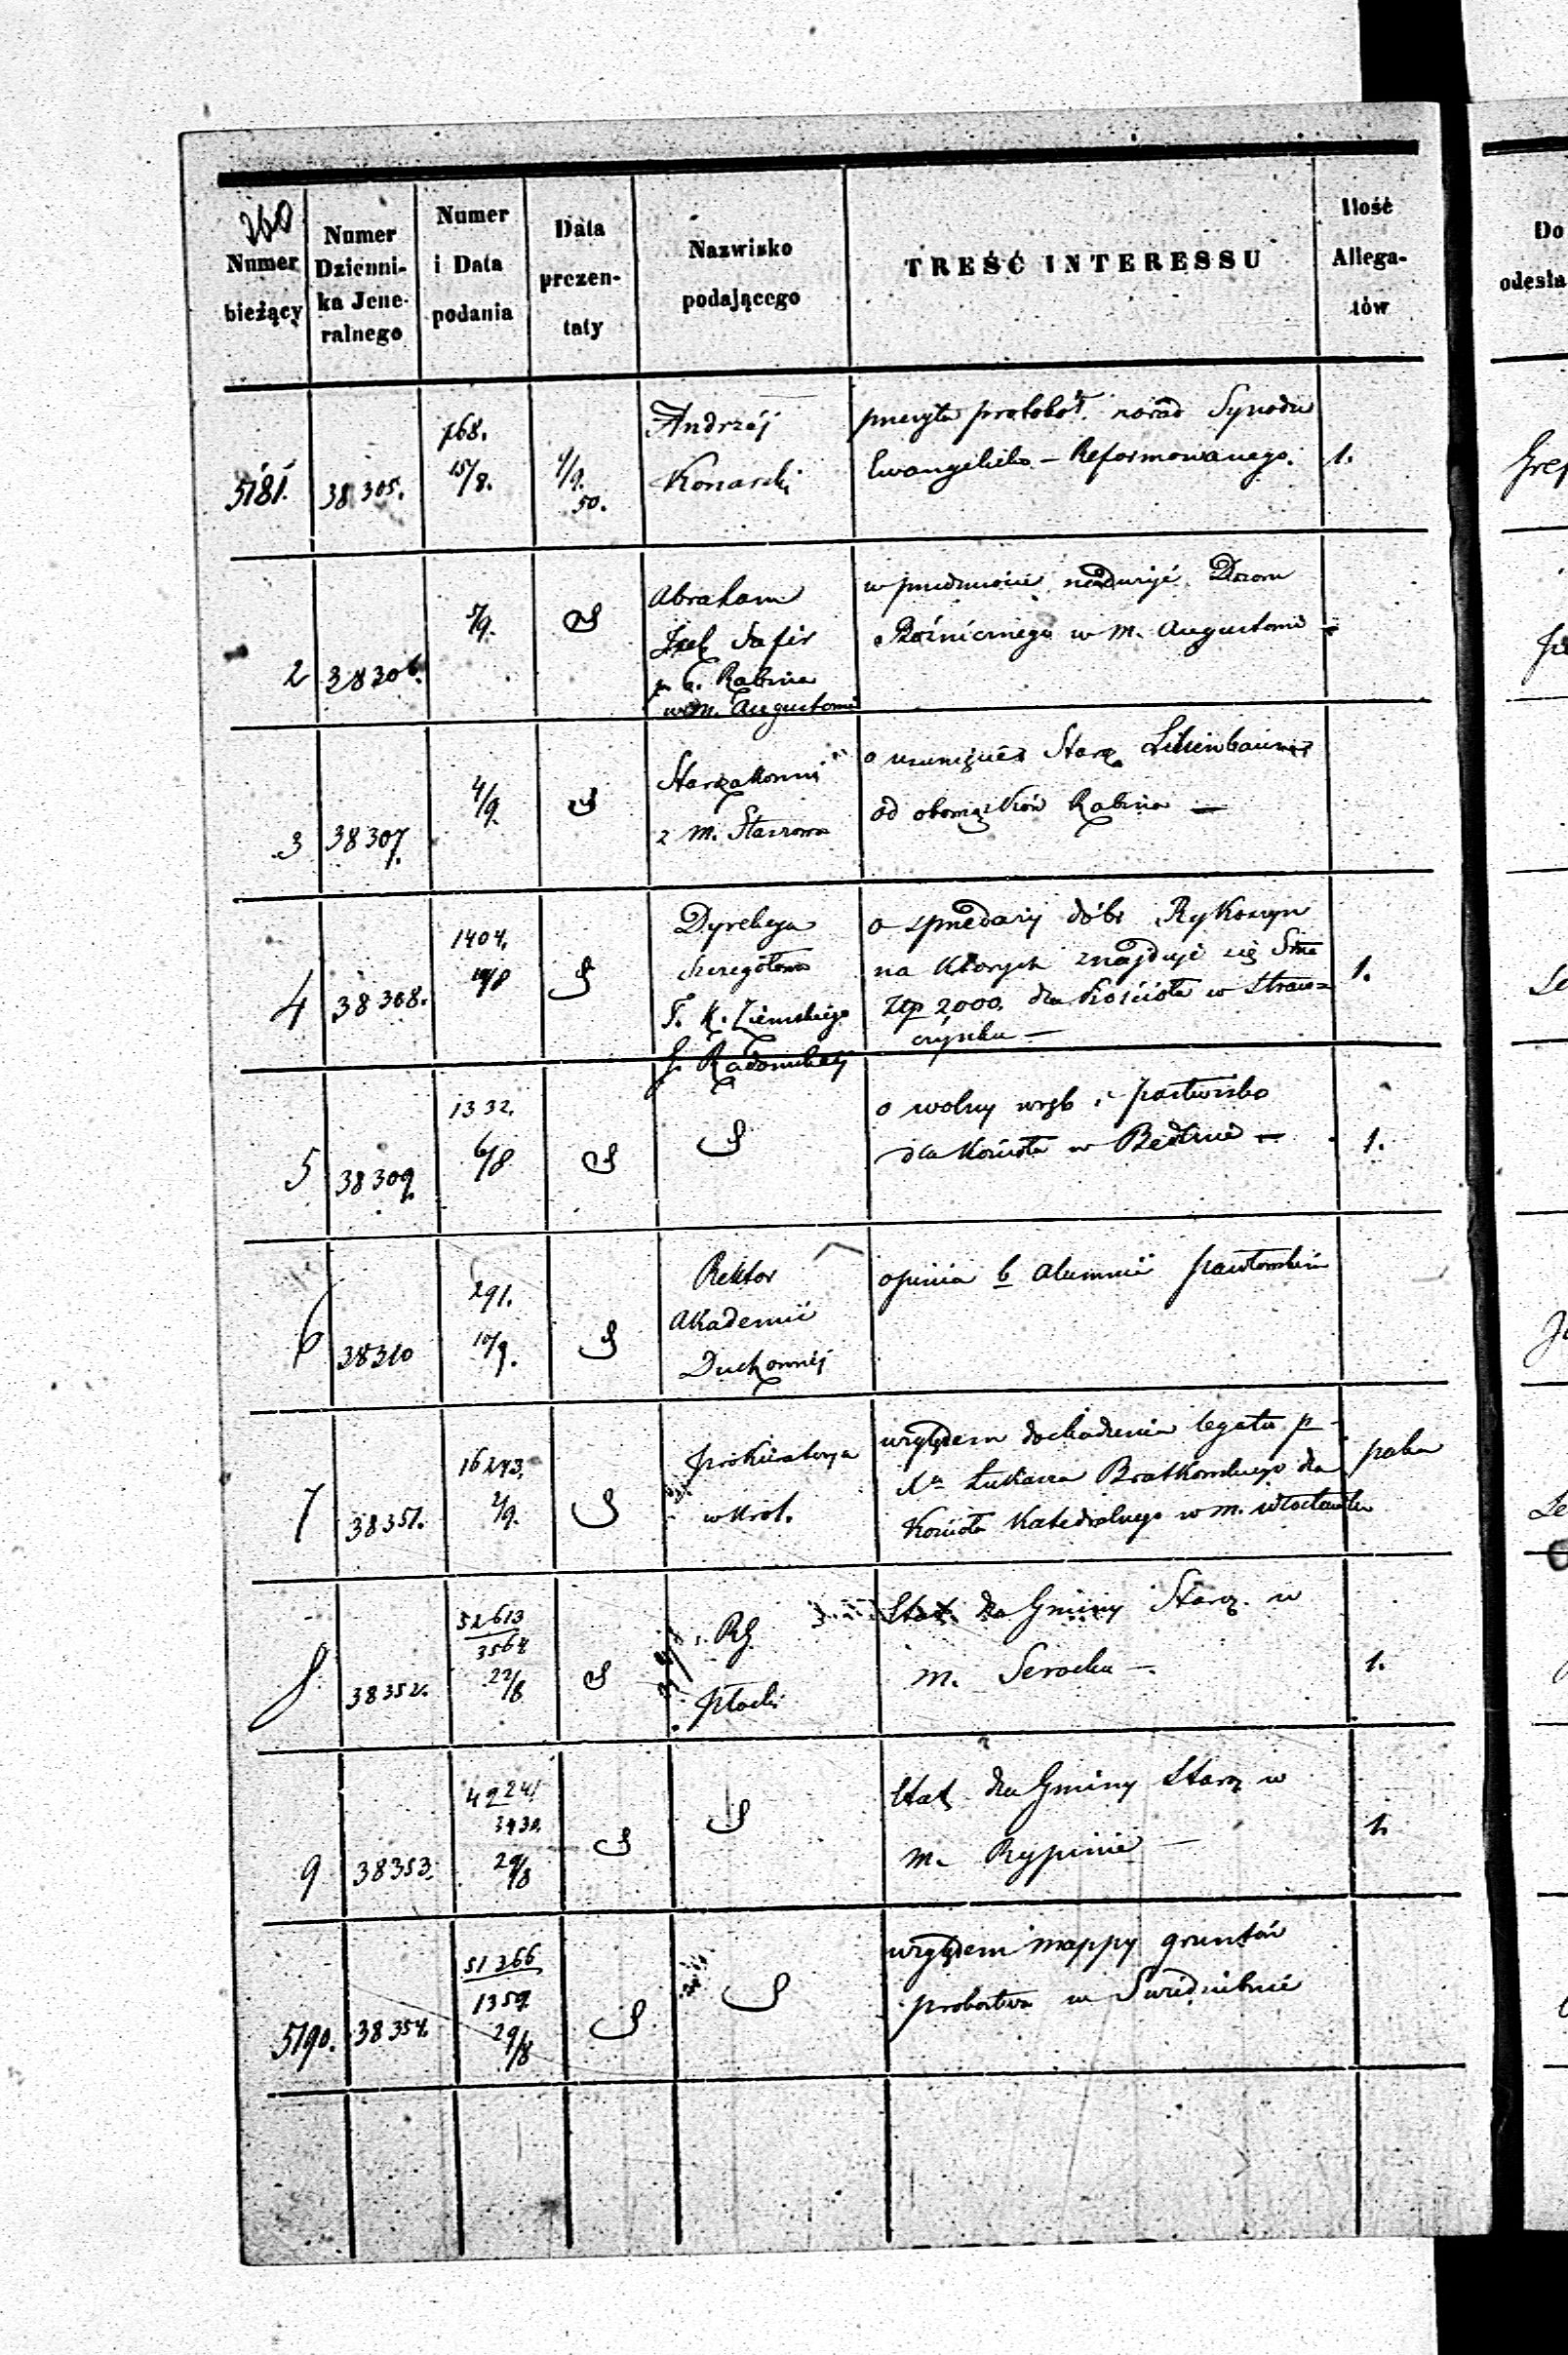 260
Numer bieżący
Numer Dzienni-
ka Jene-
ralnego
Numer i Data podania
Data prezen-
taty
Nazwisko podającego
TREŚĆ INTERESSU
Ilość Allega-
tów
Do
odesła
5181.
38305.
168.
15/8.
4/9.
50.
Andrzéj
Konarski
protokoł narad Synodu
Ewangelicko - Reformowanego.
1.
2
38306.
5/9.
Abraham
Safir
Rabina
w m. Augustowie
w przedmiocie nadużyć Dozoru
Bóżnicznego w m. Augustowie -
3
38307.
4/9.
Starzakonni
z m. Staszowa
o usunięcie Starz.
od obowiązków Rabina —
4
38308.
1404.
Dyrekcya
Szczegółowa
T. K. Ziemskiego
G. Radomskiej
o sprzedaży dóbr Rykoszyn
na których znajduje się
Złp 2000. dla Kościoła w Straw=
czynku —
1.
5
38309.
1332.
6/8
o wolny wrąb i pastwisko
dla Kościoła w —
1.
6
38310
291.
10/9.
Rektor
Akademii
Duchownéj
opinia o Alumnie
7
38351.
16243.
2/9.
Prokuratorya
w Król.
względem dochodzenia legatu p
Łukasza Bratkowskiego dla
Kościoła Katedralnego w m. Włocławku
paka
8
38352.
52613
3564
22/8
RG
Płocki
Etat dla Gminy Starz. w
m. Serocku —.
1.
9
38353.
3430.
29/8
Etat dla Gminy Starz w
m. Rypinie —
1.
5190.
38354.
51266
1359.
29/8
względem mappy gruntów
probostwa w Swiedziebnie